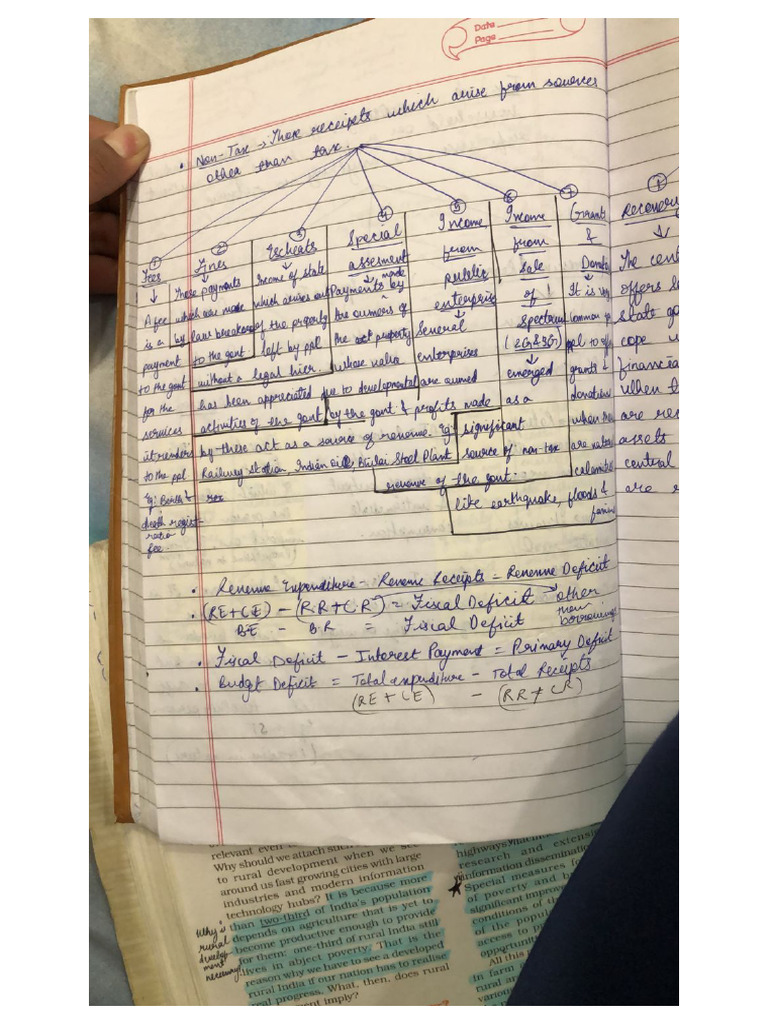 Date
Page
• Non-Tax → Those receipts which arise from sources
other than tax.
①
Fees
↓
A fee
is a
payment
to the govt
for the
services
it renders
to the ppl
Eg: Birth &
death regist-
ration
fee
②
Fines
↓
Those payments
which are made
by law breakers
to the govt
③
Escheats
↓
Income of state
which arises out
of the property
left by ppl
without a legal hier.
④
Special
assesment
↓
Payments made by
the owners of
the property
whose value
has been appreciated due to developmental
activities of the govt
⑤
Income
from
public
enterprise
↓
Several
enterprises
are owned
by the govt & profits made
by these act as a source of revenue. Eg:
Railway station, Indian oil, Bhilai Steel Plant
⑥
Income
from
Sale
of
Spectrum
(2G & 3G)
↓
emerged
as a
significant
source of non-tax
revenue of the govt.
⑦
Grants
&
Donat
↓
It is very
common
ppl to
grants &
donations
when
are natural
calamities
like earthquake, floods &
famine
①
Recovery
↓
The cent
offers
state go
cope
financia
when t
are res
assets
central
are
• Revenue Expenditure - Revenue Receipts = Revenue Deficit
• (RE+CE) - (RR+CR) = Fiscal Deficit → other than borrowings
BE - BR = Fiscal Deficit
• Fiscal Deficit - Interest Payment = Primary Deficit
• Budgt Deficit = Total expenditure - Total Receipts
(RE + CE) - (RR + CR)
relevant even
Why should we attach such
to rural development when we se
around us fast growing cities with large
industries and modern information
technology hubs? It is because more
than two-third of India's population
depends on agriculture that is yet to
become productive enough to provide
for them; one-third of rural India still
lives in abject poverty. That is the
reason why we have to see a developed
rural India if our nation has to realise
real progress. What, then, does rural
ment imply?
Why is
rural
develop-
ment
necessary?
highways
research and extensi
information dissemination
Special measures fo
of poverty and b
significant improve
conditions of th
of the popula
access to p
opportuni
All this
In farm
rural ar
various